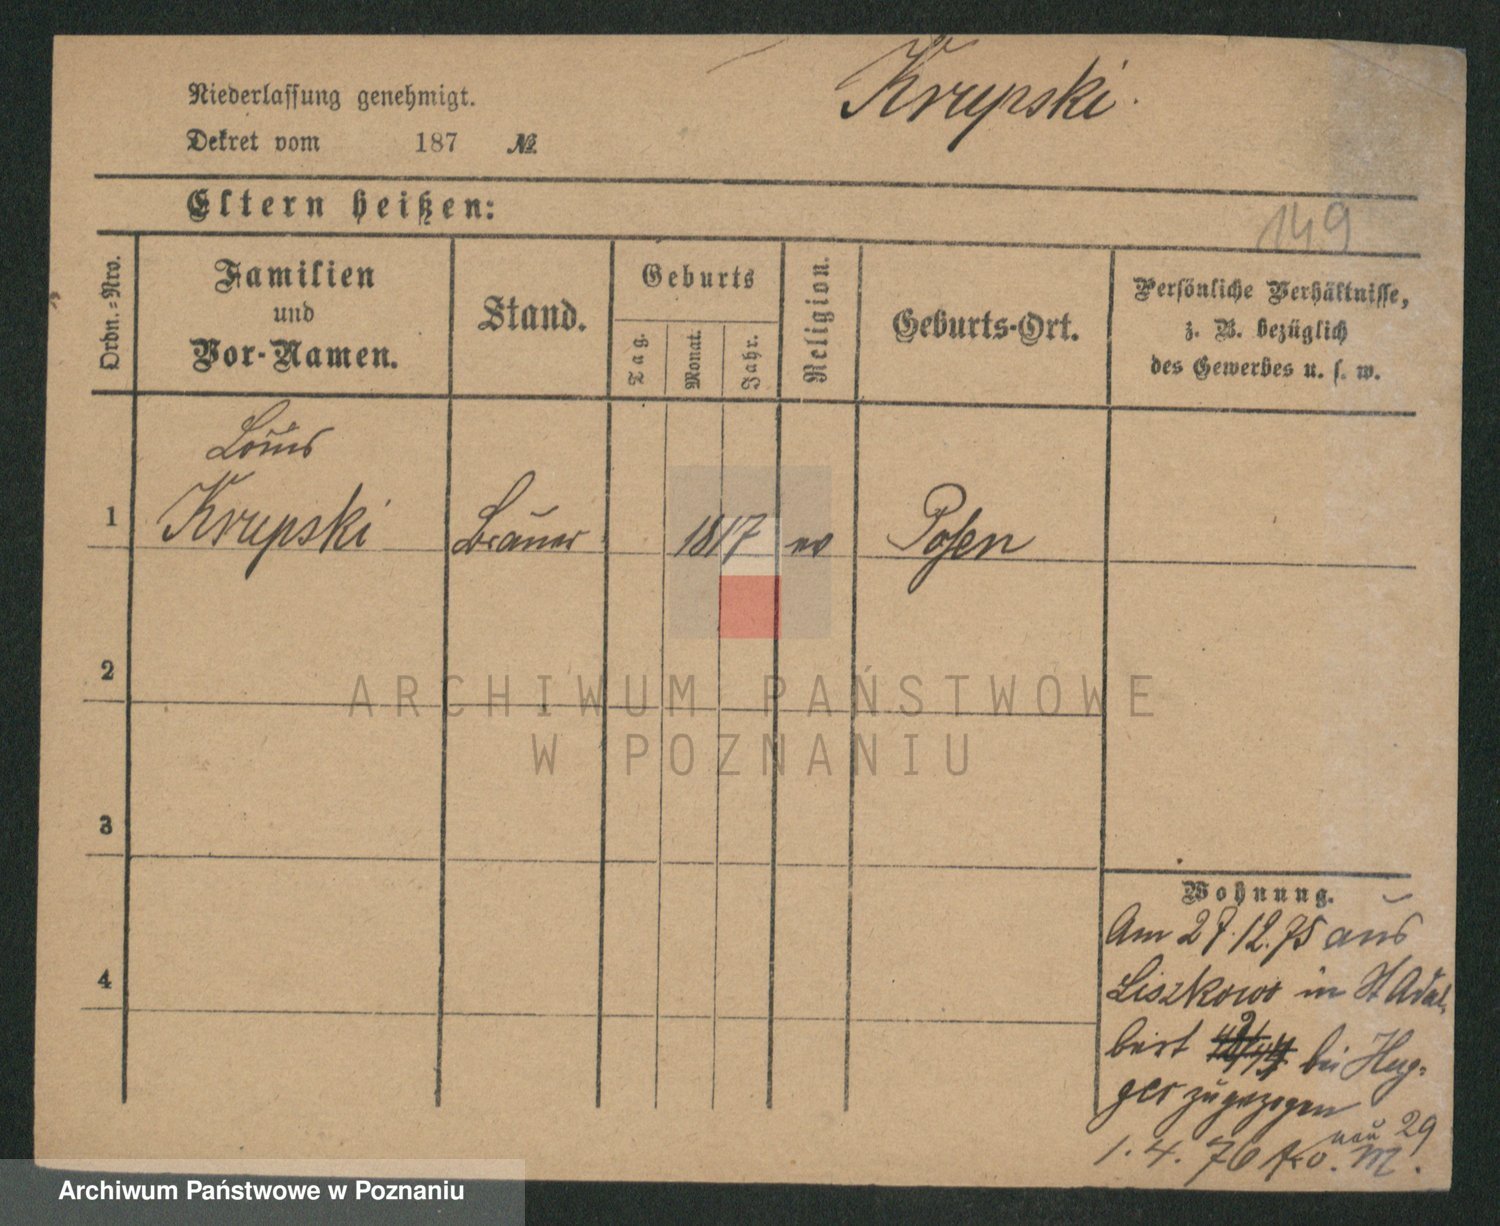 Krupski.
Niederlassung genehmigt.
Dekret vom 187 №
149
Eltern heißen:
Ordn.=Nro.
Familien
und
Vor-Namen.
Stand.
Geburts
Tag.
Monat.
Jahr.
Religion.
Geburts-Ort.
Persönliche Verhältnisse,
z. B. bezüglich
des Gewerbes u. s. w.
Louis
1 Krupski Brauer 1817 ev Posen
2
3
4
Wohnung.
Am 27.12.75 aus
Liszkowo in St Adal-
bert bei Hug-
ger zugezogen
1.4.76 neu 29
ARCHIWUM PAŃSTWOWE
W POZNANIU
Archiwum Państwowe w Poznaniu